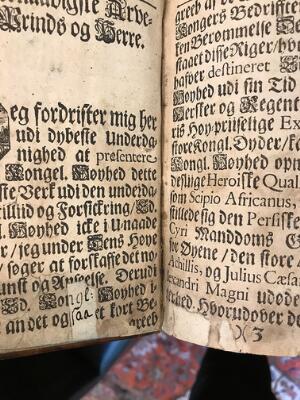 Arve-
Prinds og Herre.
eg fordrister mig her
udi dybeste Underda-
nighed at presentere
Kongel. Høyhed dette
ste Verk udi den underda-
tilliid og Forsickring / Ed.
gl. Høyhed icke i Unaade
r / jeg under Dens Høye
/ søger at forskaffe det no-
unst og Derudi
Ed. Kongl. Høyhed i
an det og saa et kort Be-
greeb
greeb af de
Kongers Bedrifter
ken Berømmelse D
staaet disse Riger / hv
hafver destineret
Høyhed udi sin Tid
Hersker og Regent
ris Høy-priselige Ex
store Kongl. Dyder / k
Kongl. Høyhed op
deslige Heroiske Qual
som Scipio Africanus,
stillede sig den Persiske
Cyri Manddoms E
for Øyene / den store
Achillis, og Julius Cæsar
exandri Magni udode
Hvorudover de
)( 3